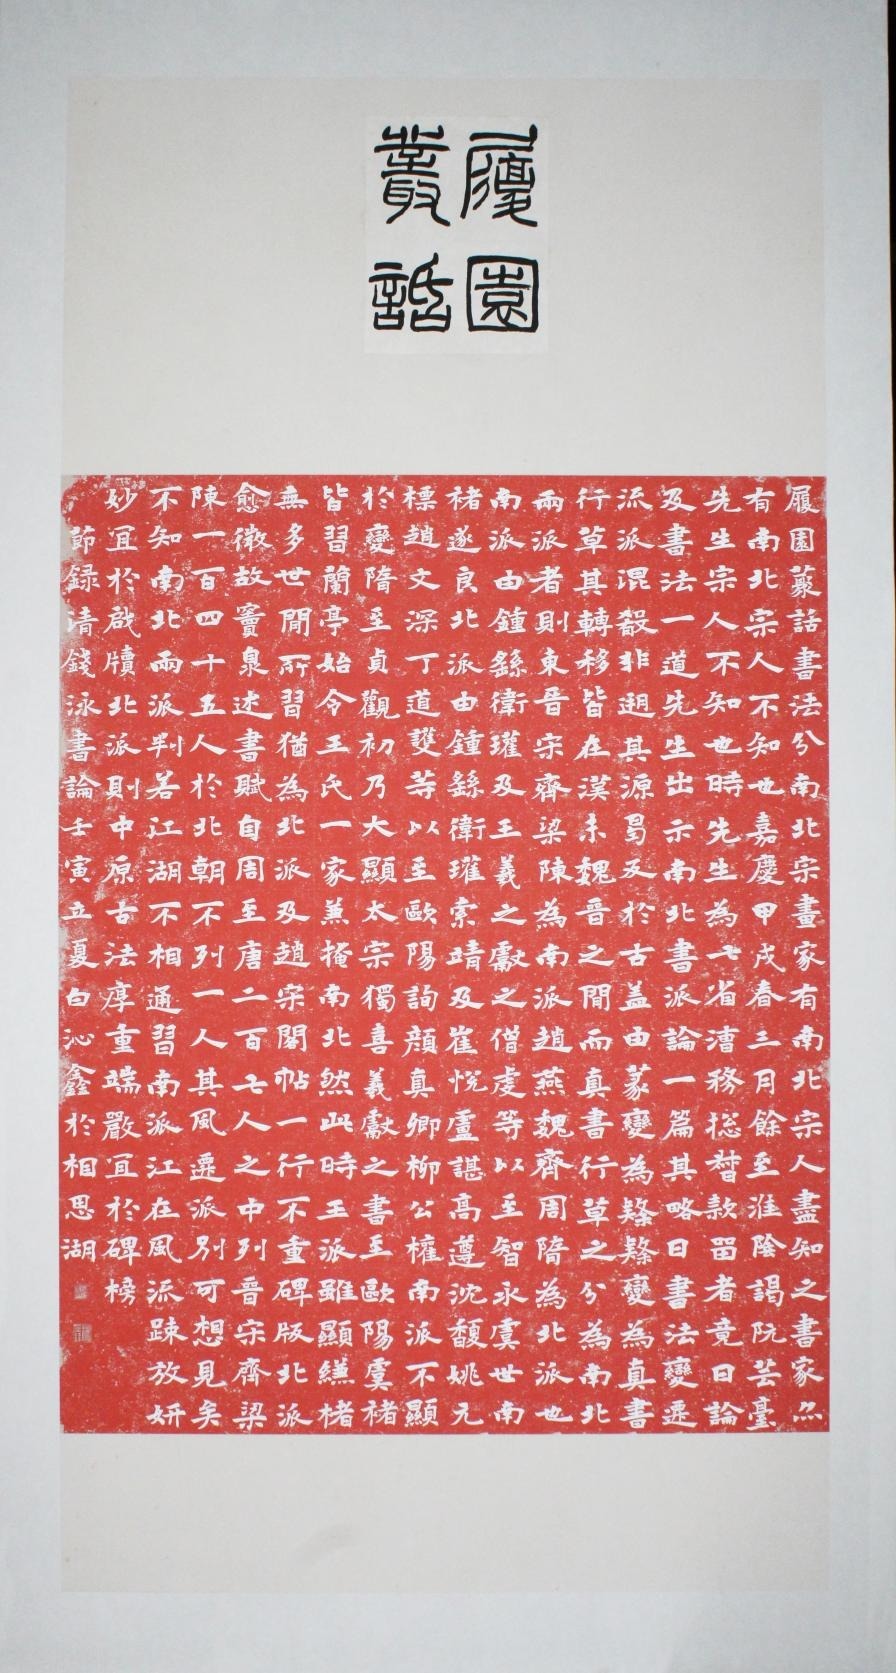 履園
叢話
履園叢話書法分南北宗畫家有南北宗人盡知之書家亦
有南北宗人不知也嘉慶甲戌春三月餘至淮陰謁阮芸臺
先生宗人不知也時先生為七省漕務総督款留者竟日論
及書法一道先生出示南北書派論一篇其略曰書法變遷
流派混殽非遡其源曷反於古蓋由篆變為隸隸變為真書
行草其轉移皆在漢末魏晉之間而真書行草之分為南北
兩派者則東晉宋齊梁陳為南派趙燕魏齊周隋為北派也
南派由鍾繇衛瓘及王羲之獻之僧虔等以至智永虞世南
褚遂良北派由鍾繇衛瓘索靖及崔悅盧諶高遵沈馥姚元
標趙文深丁道護等以至歐陽詢顔真卿柳公權南派不顯
於變隋至貞觀初乃大顯太宗獨喜羲獻之書至歐陽虞褚
皆習蘭亭始令王氏一家兼掩南北然此時王派雖顯縑楮
無多世間所習猶為北派及趙宋閣帖一行不重碑版北派
愈微故竇泉述書賦自周至唐二百七人之中列晉宋齊梁
陳一百四十五人於北朝不列一人其風遷派別可想見矣
不知南北兩派判若江湖不相通習南派江在風流疎放妍
妙宜於啟牘北派則中原古法厚重端嚴宜於碑榜
節録清錢泳書論壬寅立夏白沁鑫於相思湖